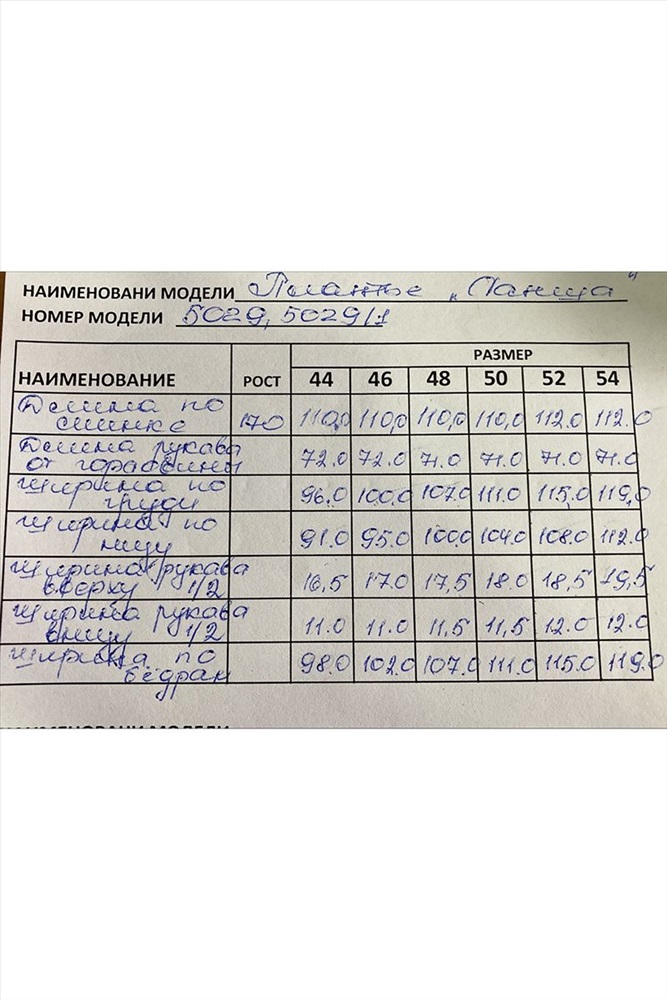 НАИМЕНОВАНИ МОДЕЛИ Платье „
НОМЕР МОДЕЛИ 5029, 5029/1
РАЗМЕР
НАИМЕНОВАНИЕ РОСТ 44 46 48 50 52 54
Длина по
спинке 170 110,0 110,0 110,0 110,0 112.0 112.0
Длина рукава
от горловины 72.0 72.0 71.0 71.0 71.0 71.0
Ширина по
груди 96.0 100.0 107.0 111.0 115,0 119,0
Ширина по
низу 91.0 95.0 100.0 104.0 108.0 112.0
Ширина рукава
вверху 1/2 16,5 17.0 17,5 18.0 18,5 19,5
Ширина рукава
внизу 1/2 11.0 11.0 11,5 11,5 12.0 12.0
Ширина по
бёдрам 98.0 102.0 107.0 111.0 115.0 119.0